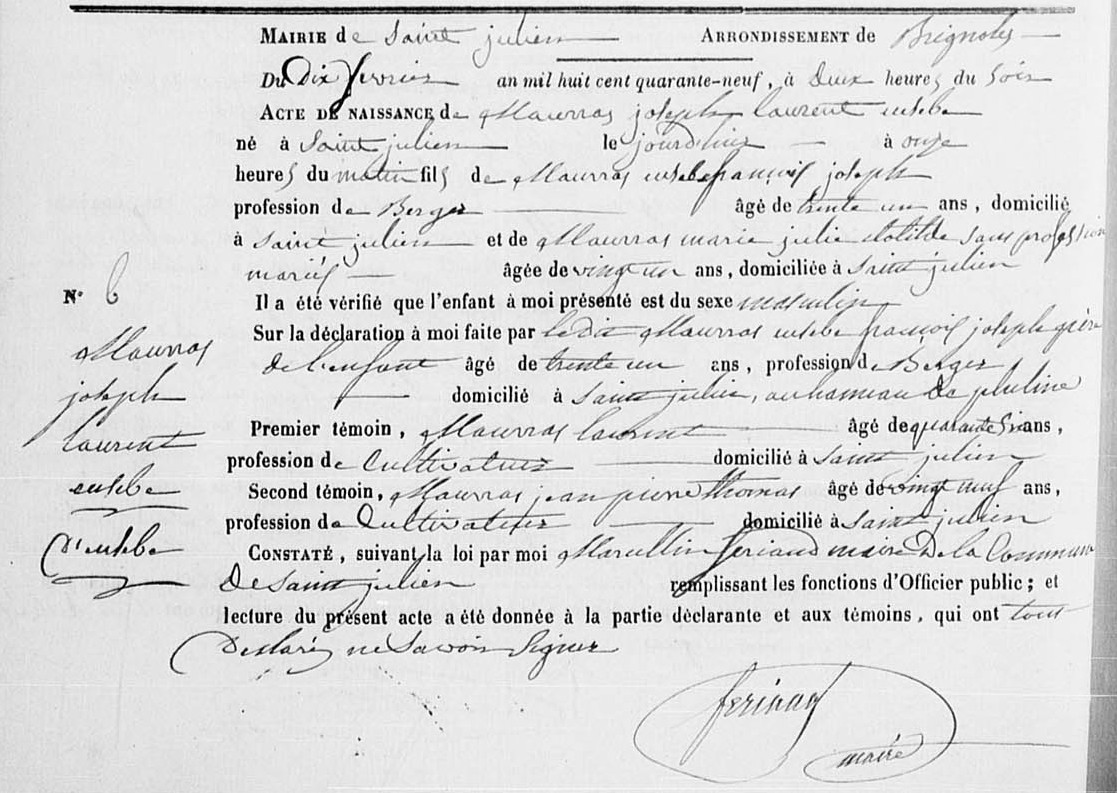 Mairie de Saint julien Arrondissement de Brignoles
Du Dix fevrier an mil huit cent quarante-neuf, à deux heures du Soir
Acte de naissance de Maurras joseph laurent eusebe
né à Saint julien le jourdhui à onze
heures du matin fils de Maurras eusebe françois joseph
profession de Berger âgé de trente un ans, domicilié
à Saint julien et de Maurras marie julie clotilde sans profession
mariés âgée de vingt un ans, domiciliée à Saint julien
N° 6
Il a été vérifié que l'enfant à moi présenté est du sexe masculin
Sur la déclaration à moi faite par ledit Maurras eusebe françois joseph père
de l'enfant âgé de trente un ans, profession de Berger
domicilié à Saint julien, au hameau de
Premier témoin, Maurras laurent âgé de quarante Six ans,
profession de Cultivateur domicilié à Saint julien
Second témoin, Maurras jean pierre thomas âgé de vingt neuf ans,
profession de Cultivateur domicilié à Saint julien
Constaté, suivant la loi par moi Marcellin feriaud maire De la Commune
De Saint julien remplissant les fonctions d'Officier public ; et
lecture du présent acte a été donnée à la partie déclarante et aux témoins, qui ont tous
Déclaré ne Savoir Signer
Maurras
joseph
laurent
eusebe
D'eusebe
feriaud
maire